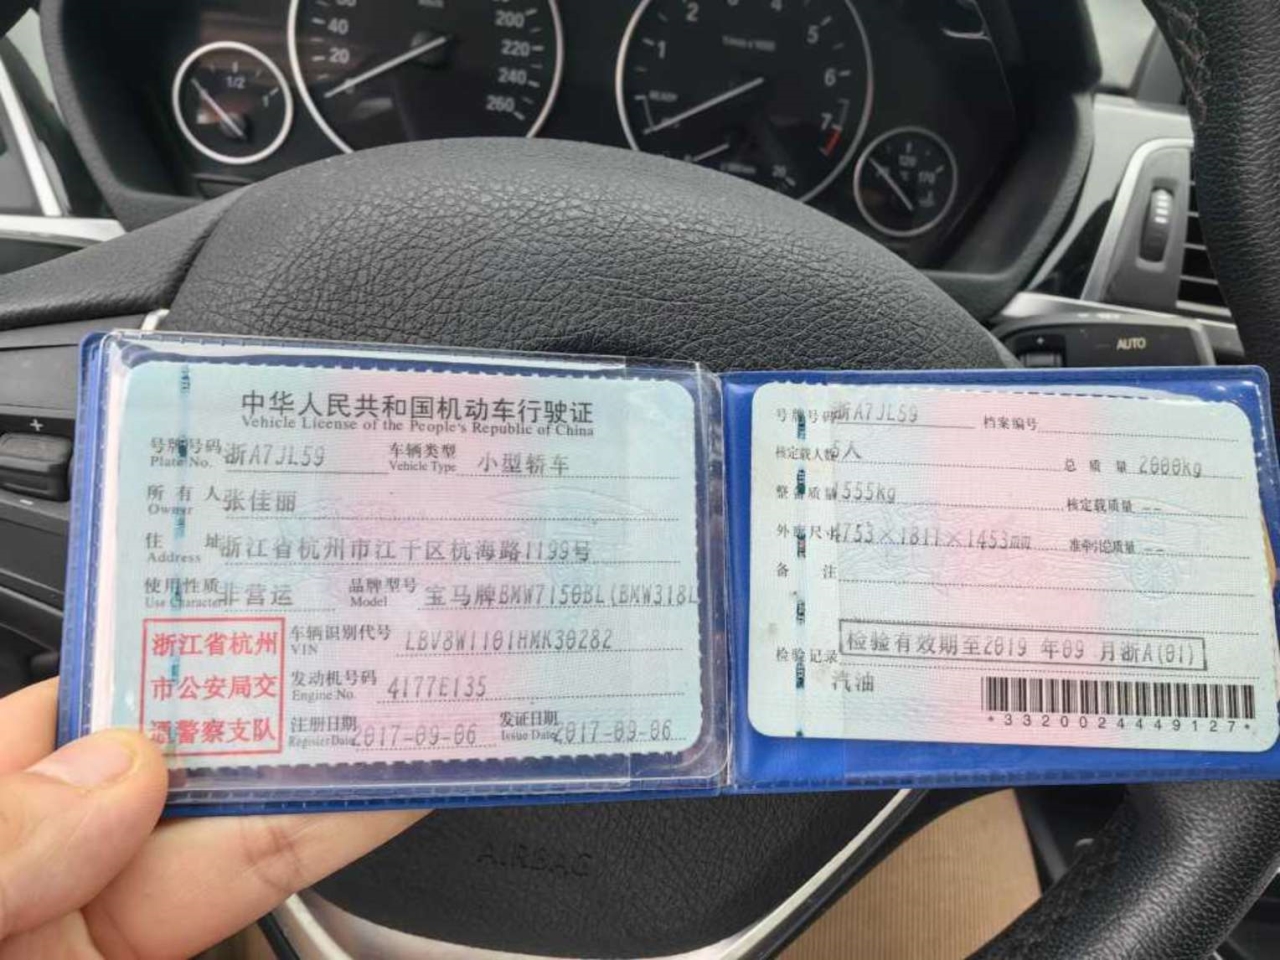 40
20
200
220
240
260
1/2
1
1
2
3
4
5
6
7
120
170
AUTO
+
中华人民共和国机动车行驶证
Vehicle License of the People's Republic of China
号牌号码 浙A7JL59 车辆类型 小型轿车
Plate No. Vehicle Type
所有人 张佳丽
Owner
住址 浙江省杭州市江干区杭海路1199号
Address
使用性质 非营运 品牌型号 宝马牌BMW7150BL(BMW318L
Use Character Model
浙江省杭州
市公安局交
通警察支队
车辆识别代号 LBV8W1101HMK30282
VIN
发动机号码 4177E135
Engine No.
注册日期 2017-09-06 发证日期 2017-09-06
Register Date Issue Date
号牌号码 浙A7JL59 档案编号
核定载人数 5人 总质量 2000kg
整备质量 1555kg 核定载质量 --
外廓尺寸 4753×1811×1453mm 准牵引总质量 --
备注
检验记录 检验有效期至2019 年09 月浙A(01)
汽油
*3320024449127*
AIRBAG